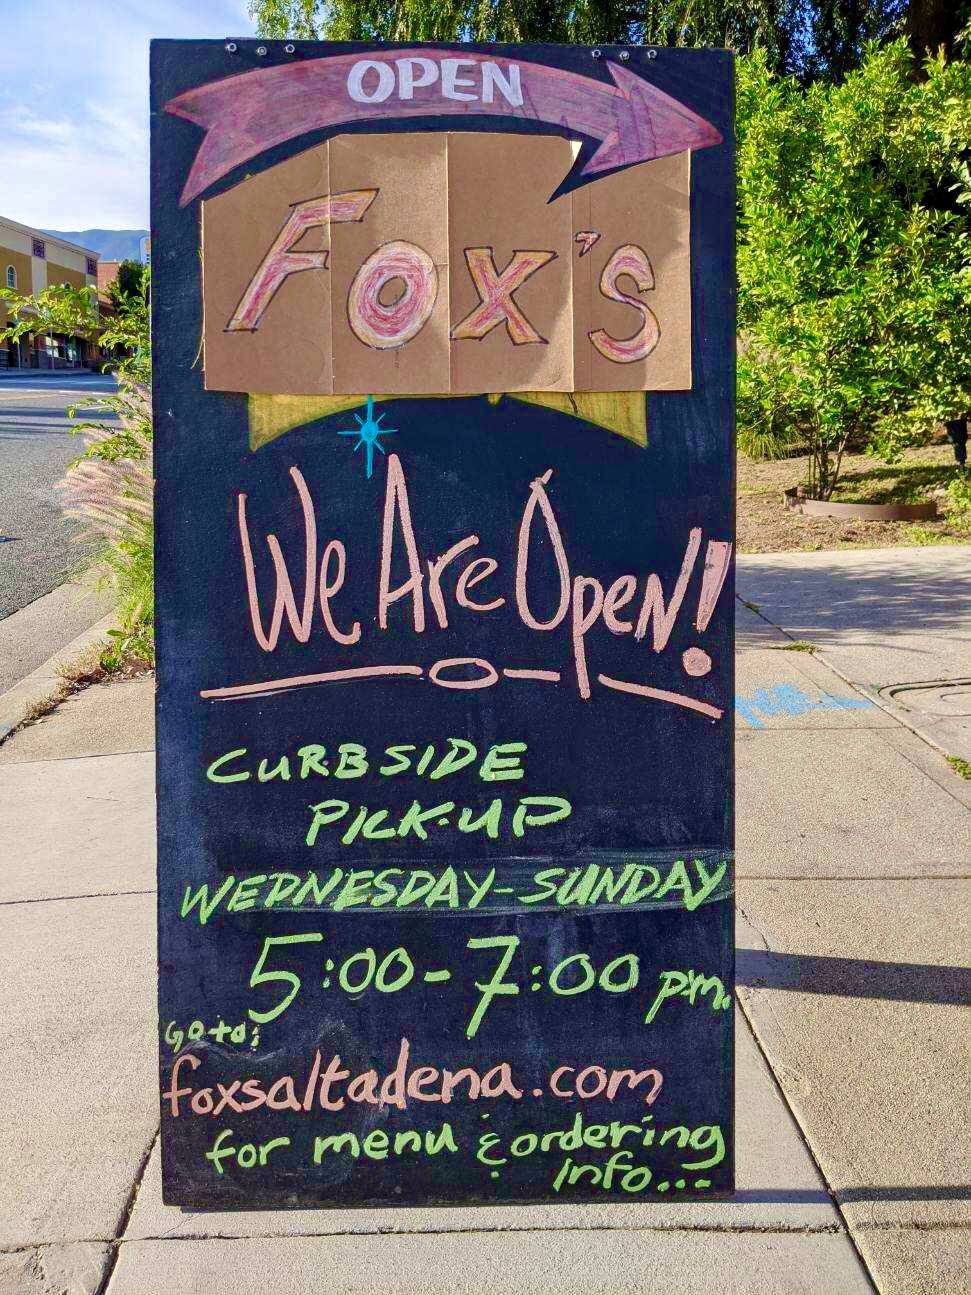 OPEN
Fox's
We Are Open!
CURBSIDE
PICK-UP
WEDNESDAY-SUNDAY
5:00-7:00 p.m.
Go to:
foxsaltadena.com
for menu & ordering
info...